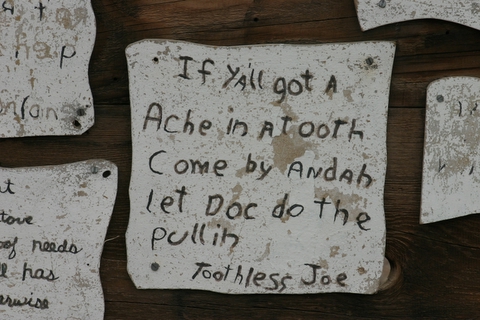 If YAll got A
Ache in A tooth
Come by Andah
let Doc do the
pullin
Toothless Joe
p
tove
oof needs
ll has
erwise